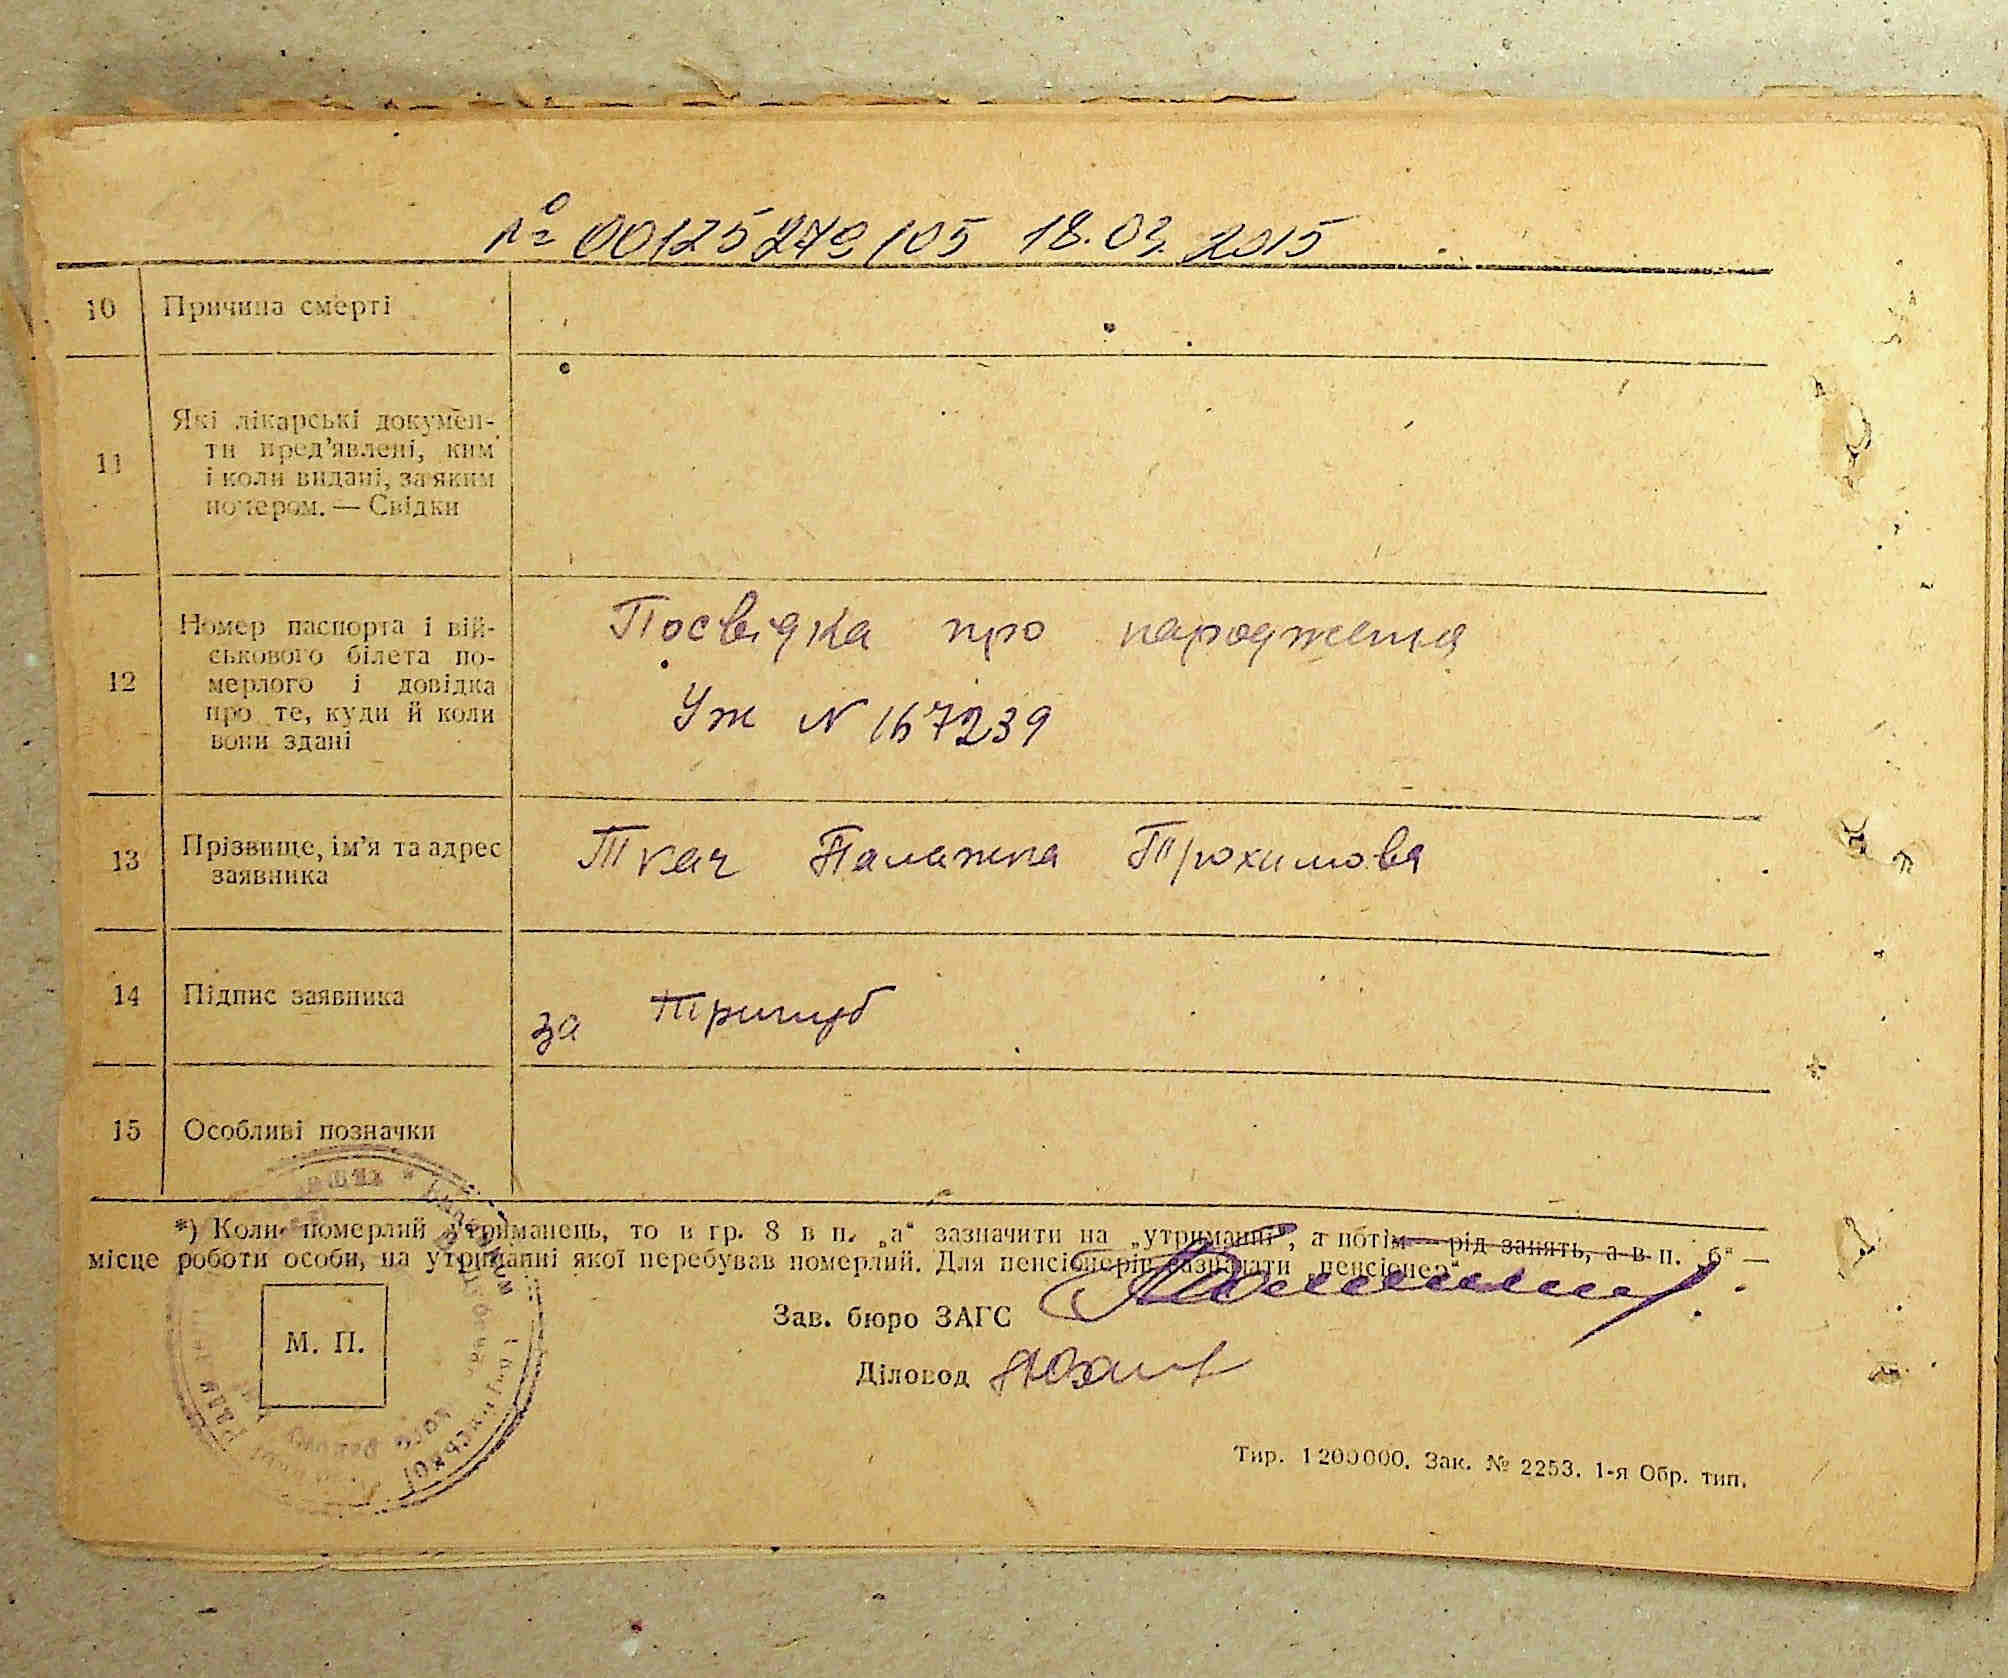 № 00125279/05 18.03.2015
10 Причина смерті
11 Які лікарські докумен-
ти пред'явлені, ким
і коли видані, за яким
номером. — Свідки
12 Номер паспорта і вій-
ськового білета по-
мерлого і довідка
про те, куди й коли
вони здані
Посвідка про народження
Уж N 167239
13 Прізвище, ім'я та адрес
заявника
Ткач Палажка Трохимова
14 Підпис заявника
за Тригуб
15 Особливі позначки
*) Коли померлий утриманець, то в гр. 8 в п. „а“ зазначити на „утриманні“, а потім — рід занять, а в п. „б“ —
місце роботи особи, на утриманні якої перебував померлий. Для пенсіонерів зазначати „пенсіонер“
Зав. бюро ЗАГС
М. П.
Діловод
Тир. 1200000. Зак. № 2253. 1-я Обр. тип.